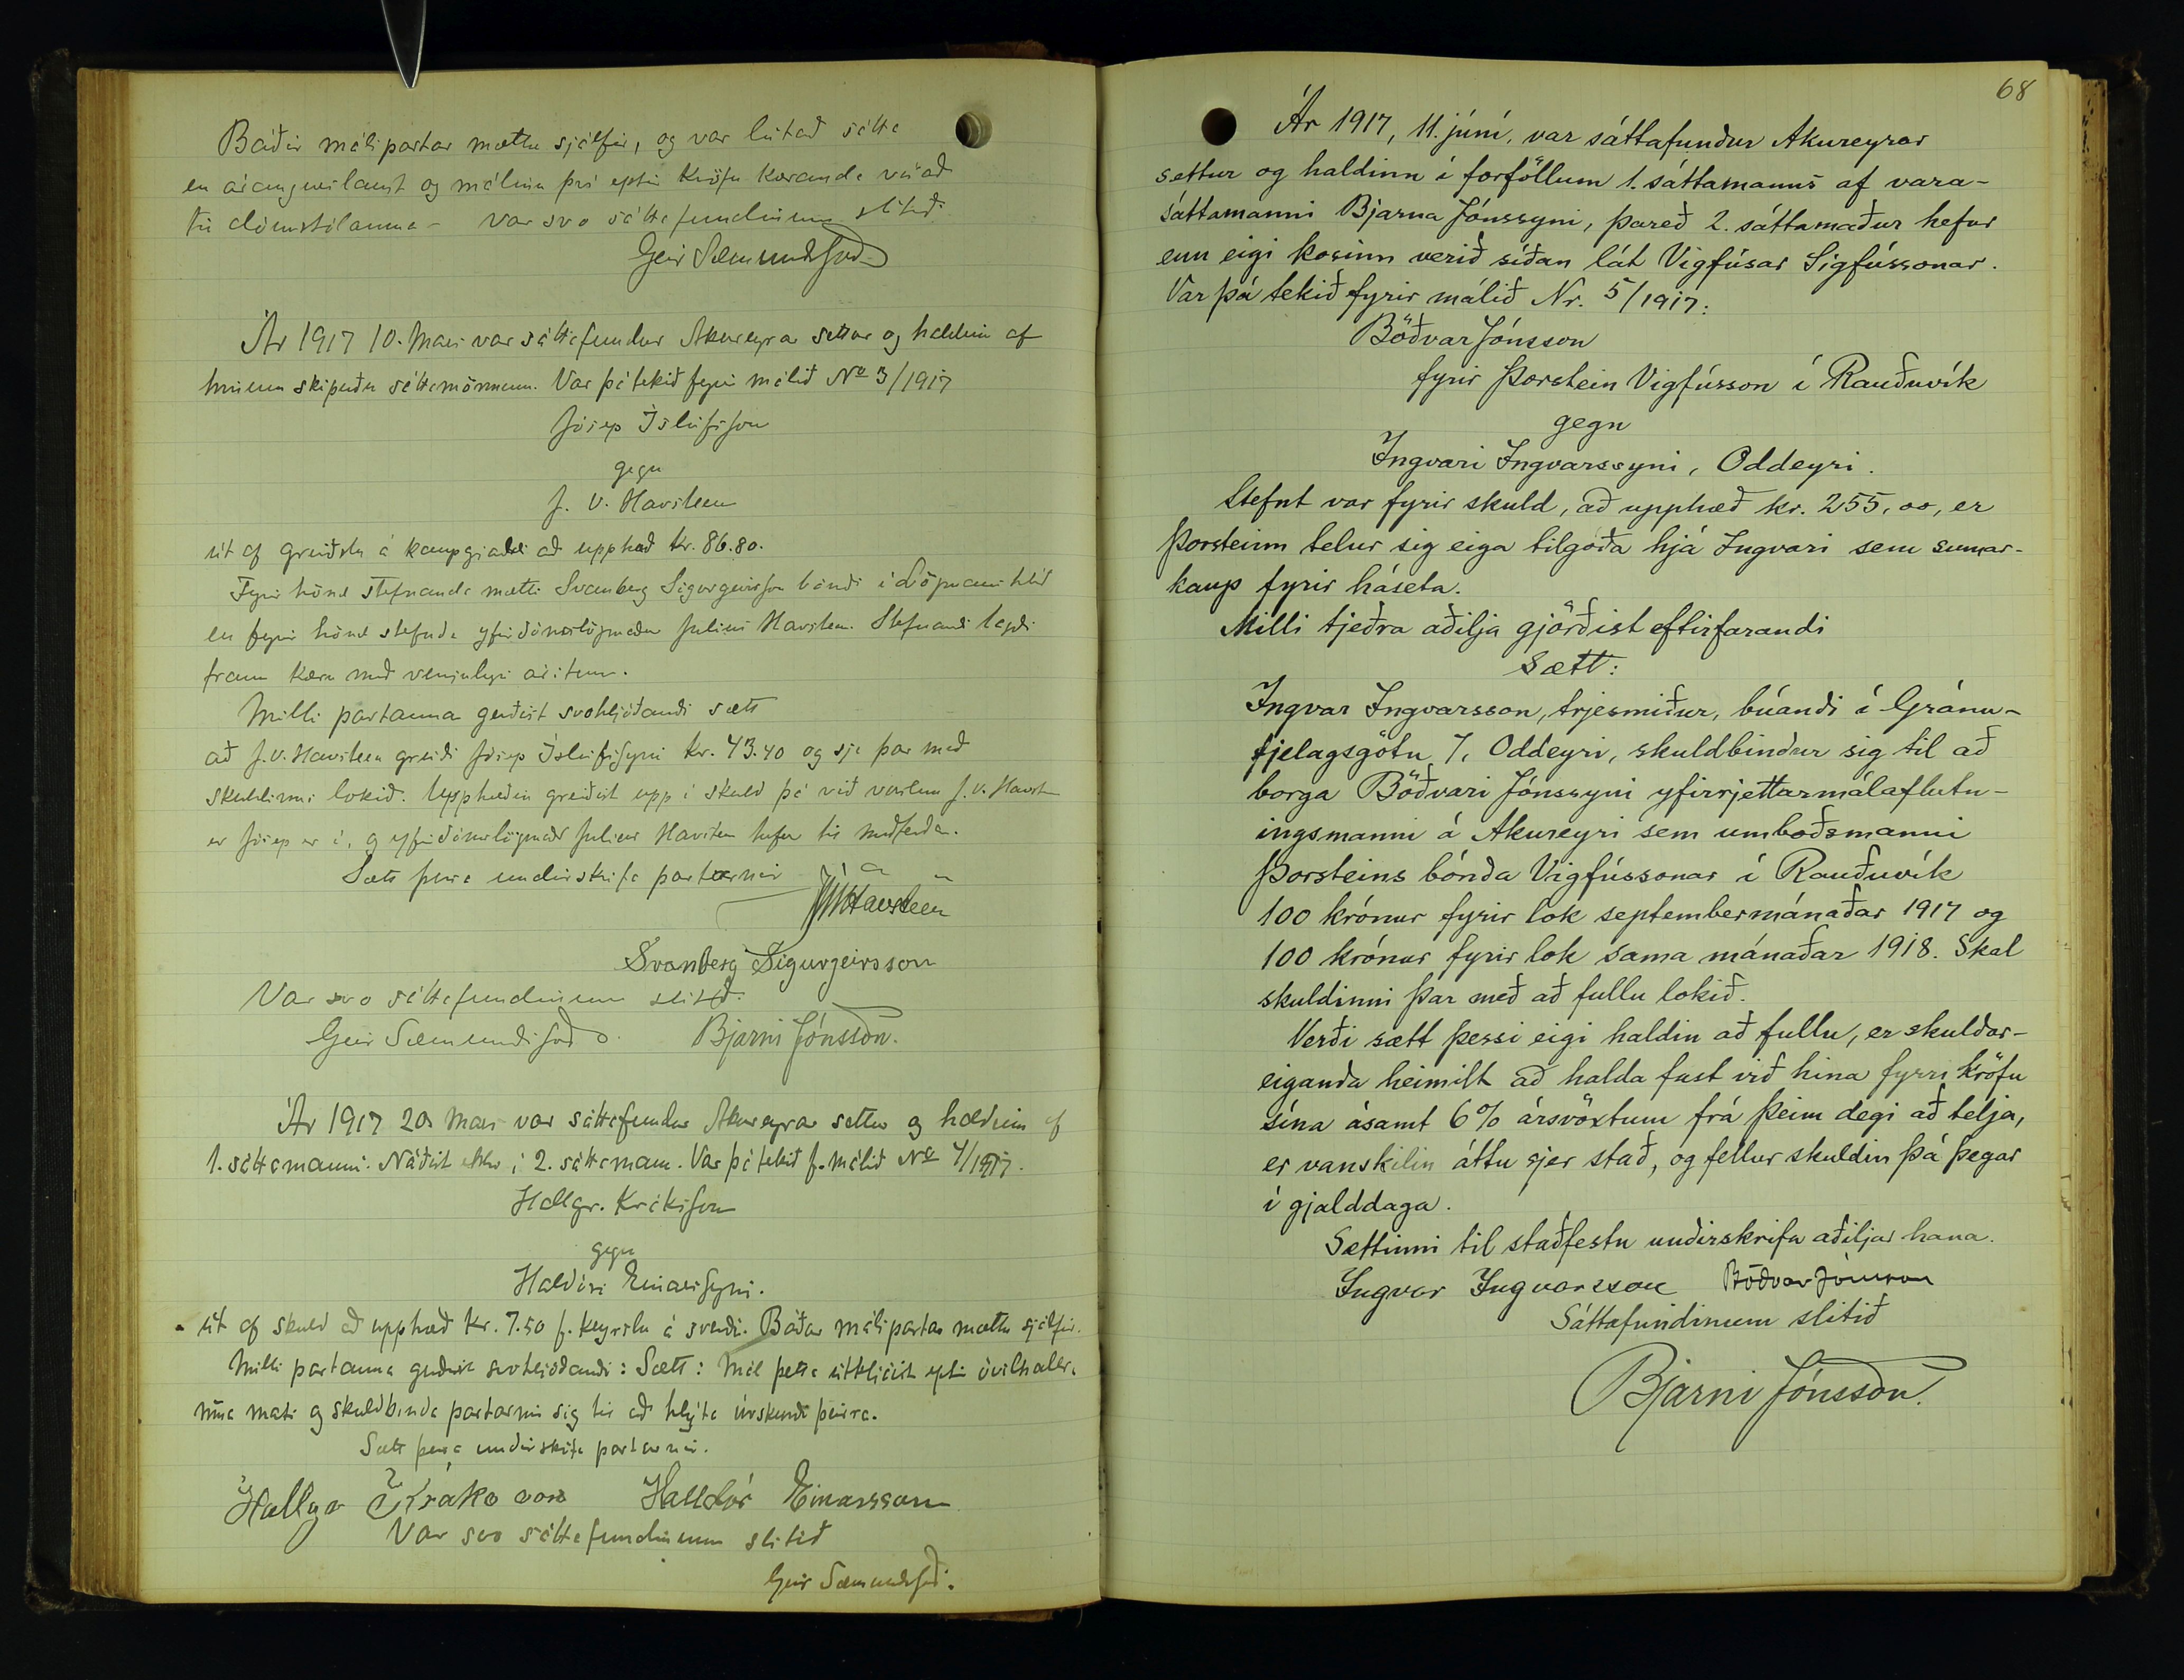 Báðir málspartar mættu sjálfir, og var leitað sátta
en árangurslaust og málinu því eptir kröfu kæranda vísað
til dómstólanna - Var svo sáttafundinum slitið.
Geir Sæmundsson
Ár 1917 10. Mars var sáttafundur Akureyrar settur og haldinn af
hinum skipuðu sáttamönnum. Var þá tekið fyrir málið No 3/1917
Jósep Ísleifsson
gegn
J. V. Havsteen
út af greiðslu á kaupgjaldi að upphæð kr. 86.80.
Fyrir hönd stefnanda mætti Svanberg Sigurgeirsson bóndi í Lögmannshlíð
en fyrir hönd stefnda yfirdómslögmaður Julius Havsteen. Stefnandi lagði
fram kæru með venjulegri áritun.
Milli partanna gerðist svohljóðandi sætt
að J.V. Havsteen greiði Jósep Ísleifssyni kr. 43.40 og sje þar með
skuldinni lokið. Upphæðin greiðist upp í skuld þá við verslun J.V. Havst
er Jósep er í, og yfirdómslögmaður Julius Havsteen hefur til meðferðar.
Sætt þessa undirskrifa partarnir
JVHavsteen
Svanberg Sigurgeirsson
Var svo sáttafundinum slitið.
Geir Sæmundsson. Bjarni Jónsson.
Ár 1917 20. Mars var sáttafundur Akureyrar settur og haldinn af
1. sáttamanni. Náðist ekki í 2. sáttamann. Var þá tekið f. málið No 4/1917.
Hallgr. Krákssson
gegn
Haldóri Einarssyni.
út af skuld að upphæð kr. 7.50 f. keyrslu á sverði. Báðar málspartar mættu sjálfir.
Milli partanna gerðist svohljóðandi: Sætt: Mál þetta útkljáist eptir óvilhallra
manna mati og skuldbinda partarnir sig til að hlýta úrskurði þeirra.
Sætt þessa undirskrifa partarnir.
Hallgr Kráksson Halldór Einarsson
Var svo sáttafundinum slitið
Geir Sæmundsson.
68
Ár 1917, 11. júní, var sáttafundur Akureyrar
settur og haldinn í forföllum 1. sáttamanns af vara-
sáttamanni Bjarna Jónssyni, þareð 2. sáttamaður hefur
enn eigi kosinn verið síðan lát Vigfúsar Sigfússonar.
Var þá tekið fyrir málið Nr. 5/1917:
Böðvar Jónsson
fyrir Þorstein Vigfússon í Rauðuvík
gegn
Ingvari Ingvarssyni, Oddeyri.
Stefnt var fyrir skuld, að upphæð kr. 255,00, er
Þorsteinn telur sig eiga tilgóða hjá Ingvari sem sumar-
kaup fyrir háseta.
Milli tjeðra aðilja gjörðist eftirfarandi
Sætt:
Ingvar Ingvarsson, trjesmiður, búandi í Gránu-
fjelagsgötu 7, Oddeyri, skuldbindur sig til að
borga Böðvari Jónssyni yfirrjettarmálaflutn-
ingsmanni á Akureyri sem umboðsmanni
Þorsteins bónda Vigfússonar í Rauðuvík
100 krónur fyrir lok septembermánaðar 1917 og
100 krónur fyrir lok sama mánaðar 1918. Skal
skuldinni þar með að fullu lokið.
Verði sætt þessi eigi haldin að fullu, er skuldar-
eiganda heimilt að halda fast við hina fyrri kröfu
sína ásamt 6% ársvöxtum frá þeim degi að telja,
er vanskilin áttu sjer stað, og fellur skuldin þá þegar
í gjalddaga.
Sættinni til staðfestu undirskrifa aðiljar hana.
Ingvar Ingvarsson Böðvar Jónsson
Sáttafundinum slitið
Bjarni Jónsson.